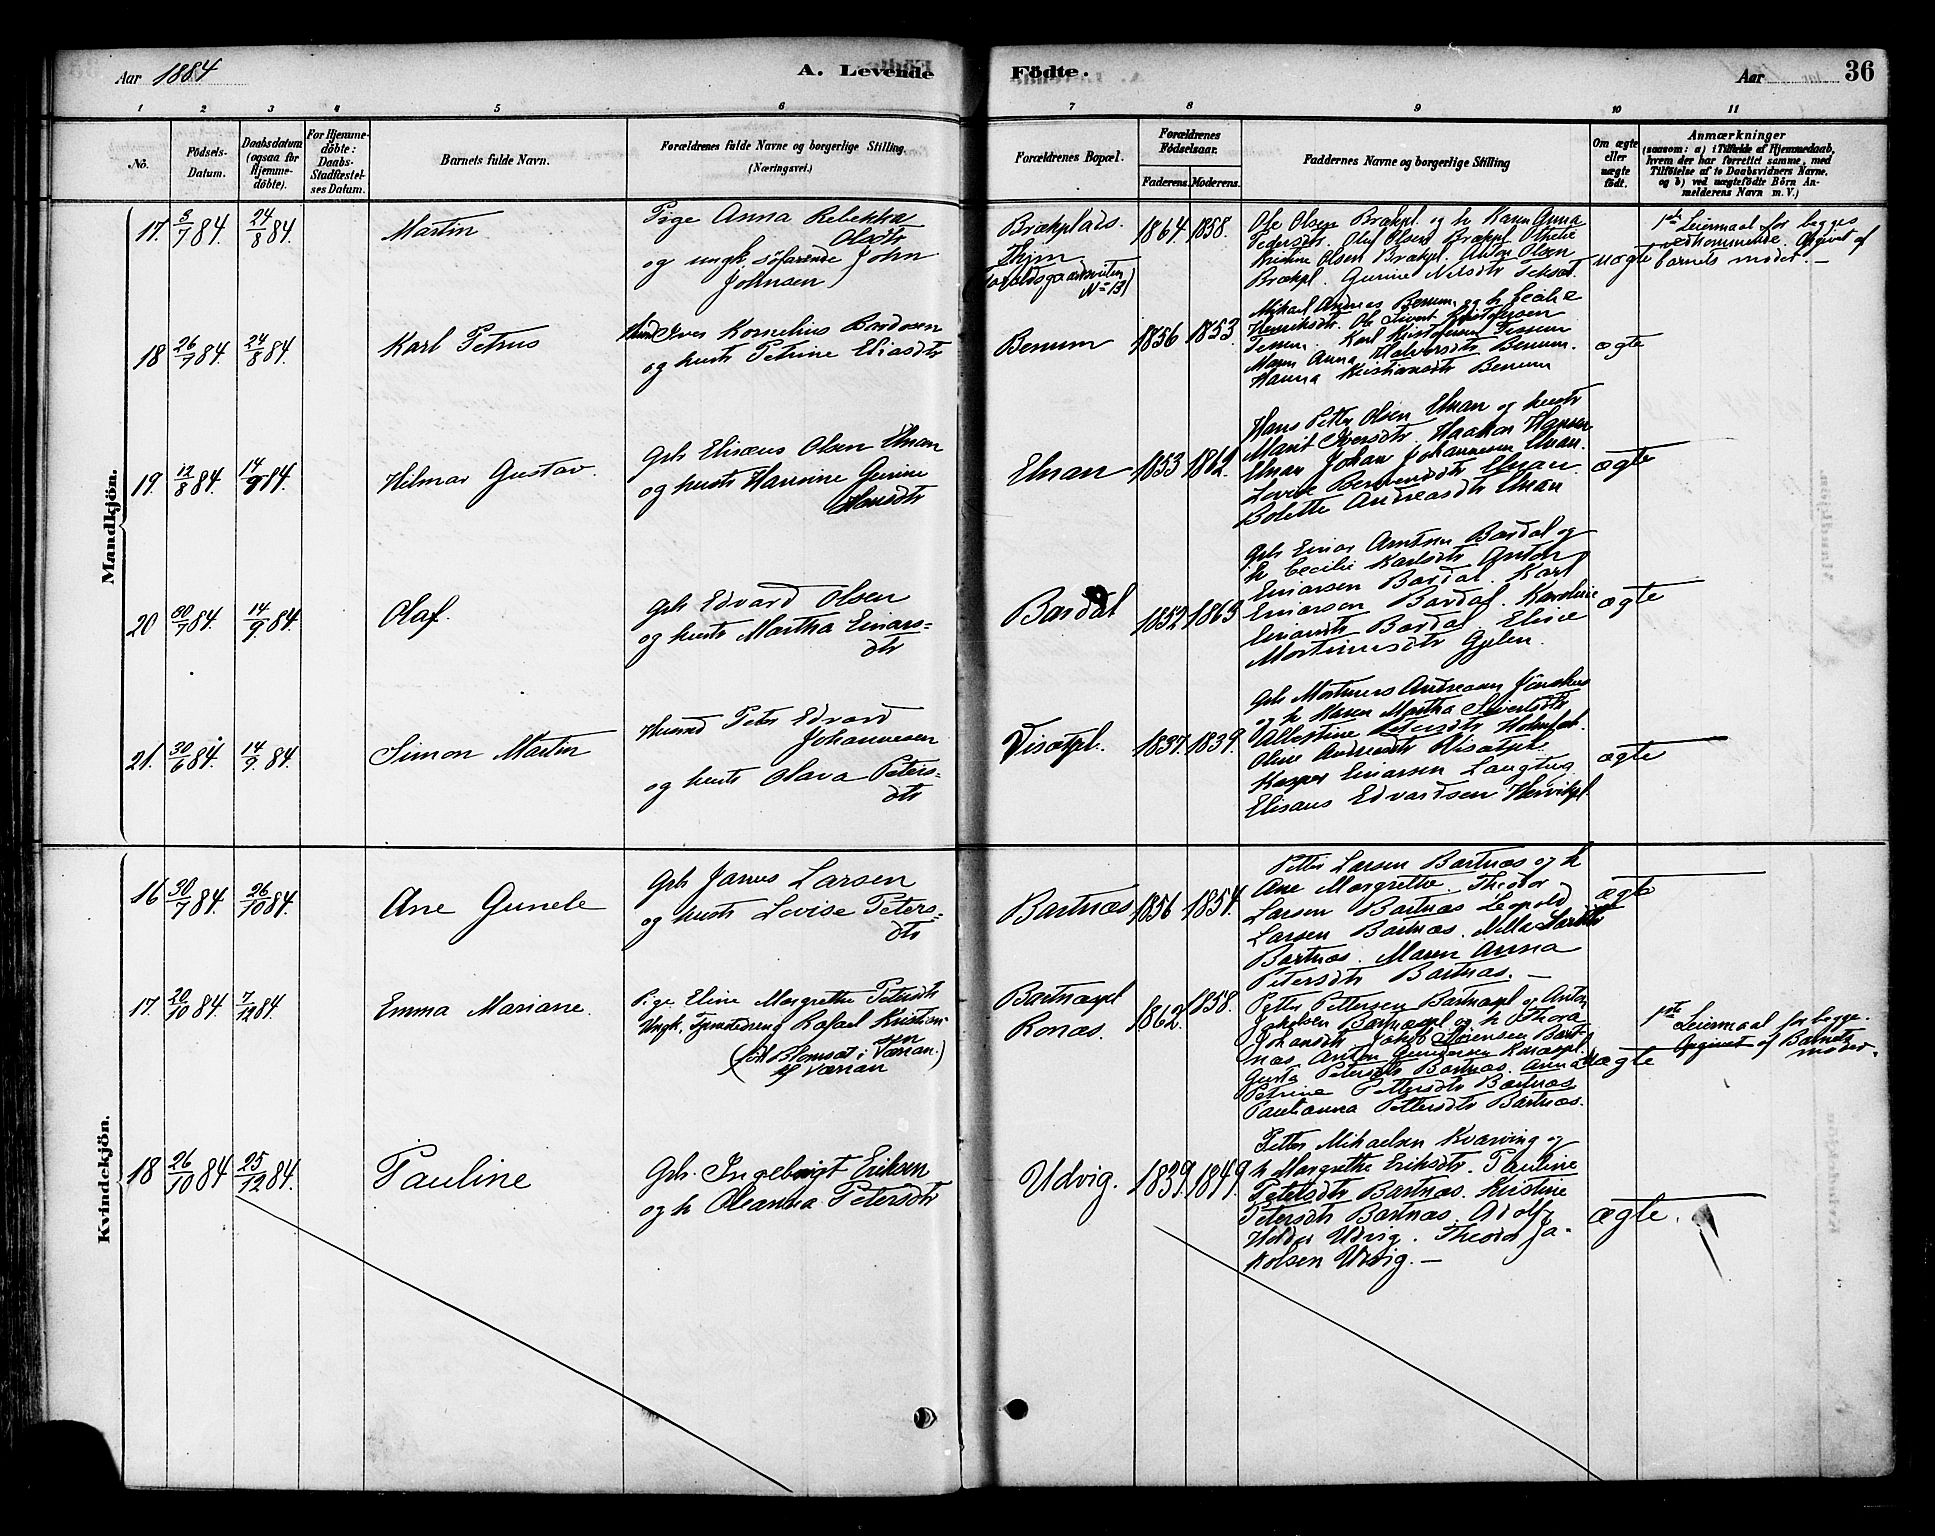 Aar 1884
A. Levende
Födte.
Aar
36
1 2 3 4 5 6 7 8 9 10 11
No.
Födsels-
Datum.
Daabsdatum
(ogsaa for
Hjemme-
döbte).
For Hjemme-
döbte:
Daabs-
Stadfæstel-
ses Datum.
Barnets fulde Navn.
Forældrenes fulde Navne og borgerlige Stilling
(Næringsvei.)
Forældrenes Bopæl.
Forældrenes
Födselsaar.
Faderens. Moderens.
Faddernes Navne og borgerlige Stilling
Om ægte
eller
uægte
födt.
Anmærkninger
(saasom: a) i Tilfælde af Hjemmedaab,
hvem der har forrettet samme, med
Tilföielse af to Daabsvidners Navne.
og b) ved uægtefödte Börn An-
melderens Navn m. V.)
Mandkjön.
17. 3/7 84. 24/8 84.
Martin
Pige Anna Rebekka
Olsdtr
og ungk söfarende John
Johnsen
Brækplads.
1864. 1858.
Ole Olsen Brækpl og h Karen Anna
Pedersdtr. Oluf Olsen Brækpl. Othelie
Kristine Olsen Brækpl. Anton Olsen
Brækpl. Gurine Nilsdtr
uægte
1ste Leiermaal for begges
vedkommende. Opgivet af
barnets moder. –
18 26/7 84. 24/8 84.
Karl Petrus
Iver Kornelius Bardosen
og hustr Petrine Eliasdtr
Benum
1856 1853.
Mikael Andreas Benum og h Cecilie
Henriksdtr. Ole Sivert Kristofersen
Tessem. Karl Kristofersen Tessem
Maren Anna Halversdtr Benum.
Hanna Kristiansdtr Benum
ægte
19. 12/8 84. 14/9 84.
Hilmar Gustav.
Gbr Elisæus Olsen Elnan
og hustr Hansine Gurine
Elnan
1853 1862.
Hans Petter Olsen Elnan og hustr
Marit Iversdtr. Haakon Hansen
Elnan Johan Johannesen Elnan.
Lovise Elnan.
Bolette Andreasdtr Elnan
ægte
20 30/7 84. 14/9 84.
Olaf.
Gbr Edvard Olsen
og hustr Martha Einars-
dtr
Bardal
1852 1863
Gbr Einar Arntsen Bardal og
h Cecilie Karlsdtr. Anton
Einarsen Bardal. Karl
Einarsen Bardal. Karoline
Einarsdtr Bardal. Elise
Mortinusdtr Gjelen.
ægte
21. 30/6 84. 14/9. 84.
Simon Martin
Husmd Peter Edvard
Johannesen
og hustr Olava Peters-
dtr
Visetpl.
1837. 1839.
Gbr Mortinus Andreasen
og h Karen Martha Sivertsdtr
Albertine Petersdtr
Oline Andreasdtr Visetpl.
Kasper Einarsen Langtug
Elisæus Edvardsen
ægte
Kvindekjön.
16 30/7 84. 26/10 84.
Ane Gunele
Gbr James Larsen
og hustr Lovise Peters-
dtr
Bartnæs
1856 1854.
Petter Larsen Bartnæs og h
Ane Margrethe. Theodor
Larsen Bartnæs Leopold
Larsen Bartnæs. Nilla Larsdtr
Bartnæs. Maren Anna
Petersdtr Bartnæs. –
ægte
17. 20/10 84. 7/12 84.
Emma Mariane.
Pige Eline Margrethe Petersdtr
Ungk. Tjenstedreng Rafael Kristian-
sen
Bartnæspl
Ronæs.
1862. 1858.
Petter Pettersen Bartnæspl og Anton
Jakobsen Bartnæspl og h Thora
Johansdtr. Jakob Sörensen Bart-
næs, Anton Gundersen Ronæspl.
Gusta Petersdtr Bartnæs. Anna
Petrine Pettersdtr Bartnæs
Paulianna Pettersdtr Bartnæs.
uægte
1ste Leiermaal for begge.
Opgivet af Barnets
moder.
18 26/10 84 25/12 84.
Pauline
Gbr. Ingebrigt Eriksen
og h Oleanna Petersdtr
Udvig.
1839. 1849.
Petter Mikaelsen Kværving og
h Margrethe Eriksdtr. Pauline
Petersdtr Bartnæs. Kristine
Petersdtr Bartnæs. Adolf
Holder Udvig. Theodor Ja-
kobsen Udvig. –
ægte.